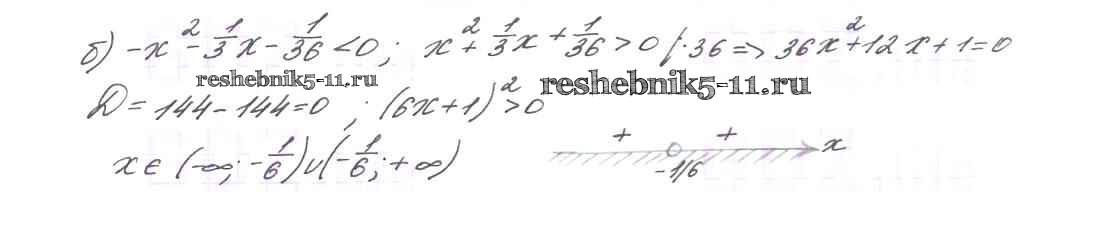 б) -x² - 1/3 x - 1/36 < 0 ; x² + 1/3 x + 1/36 > 0 /·36 => 36x² + 12x + 1 = 0
reshebnik5-11.ru reshebnik5-11.ru
D = 144 - 144 = 0 ; (6x+1)² > 0
+ + x
x ∈ (-∞; -1/6) ∪ (-1/6; +∞)
-1/6